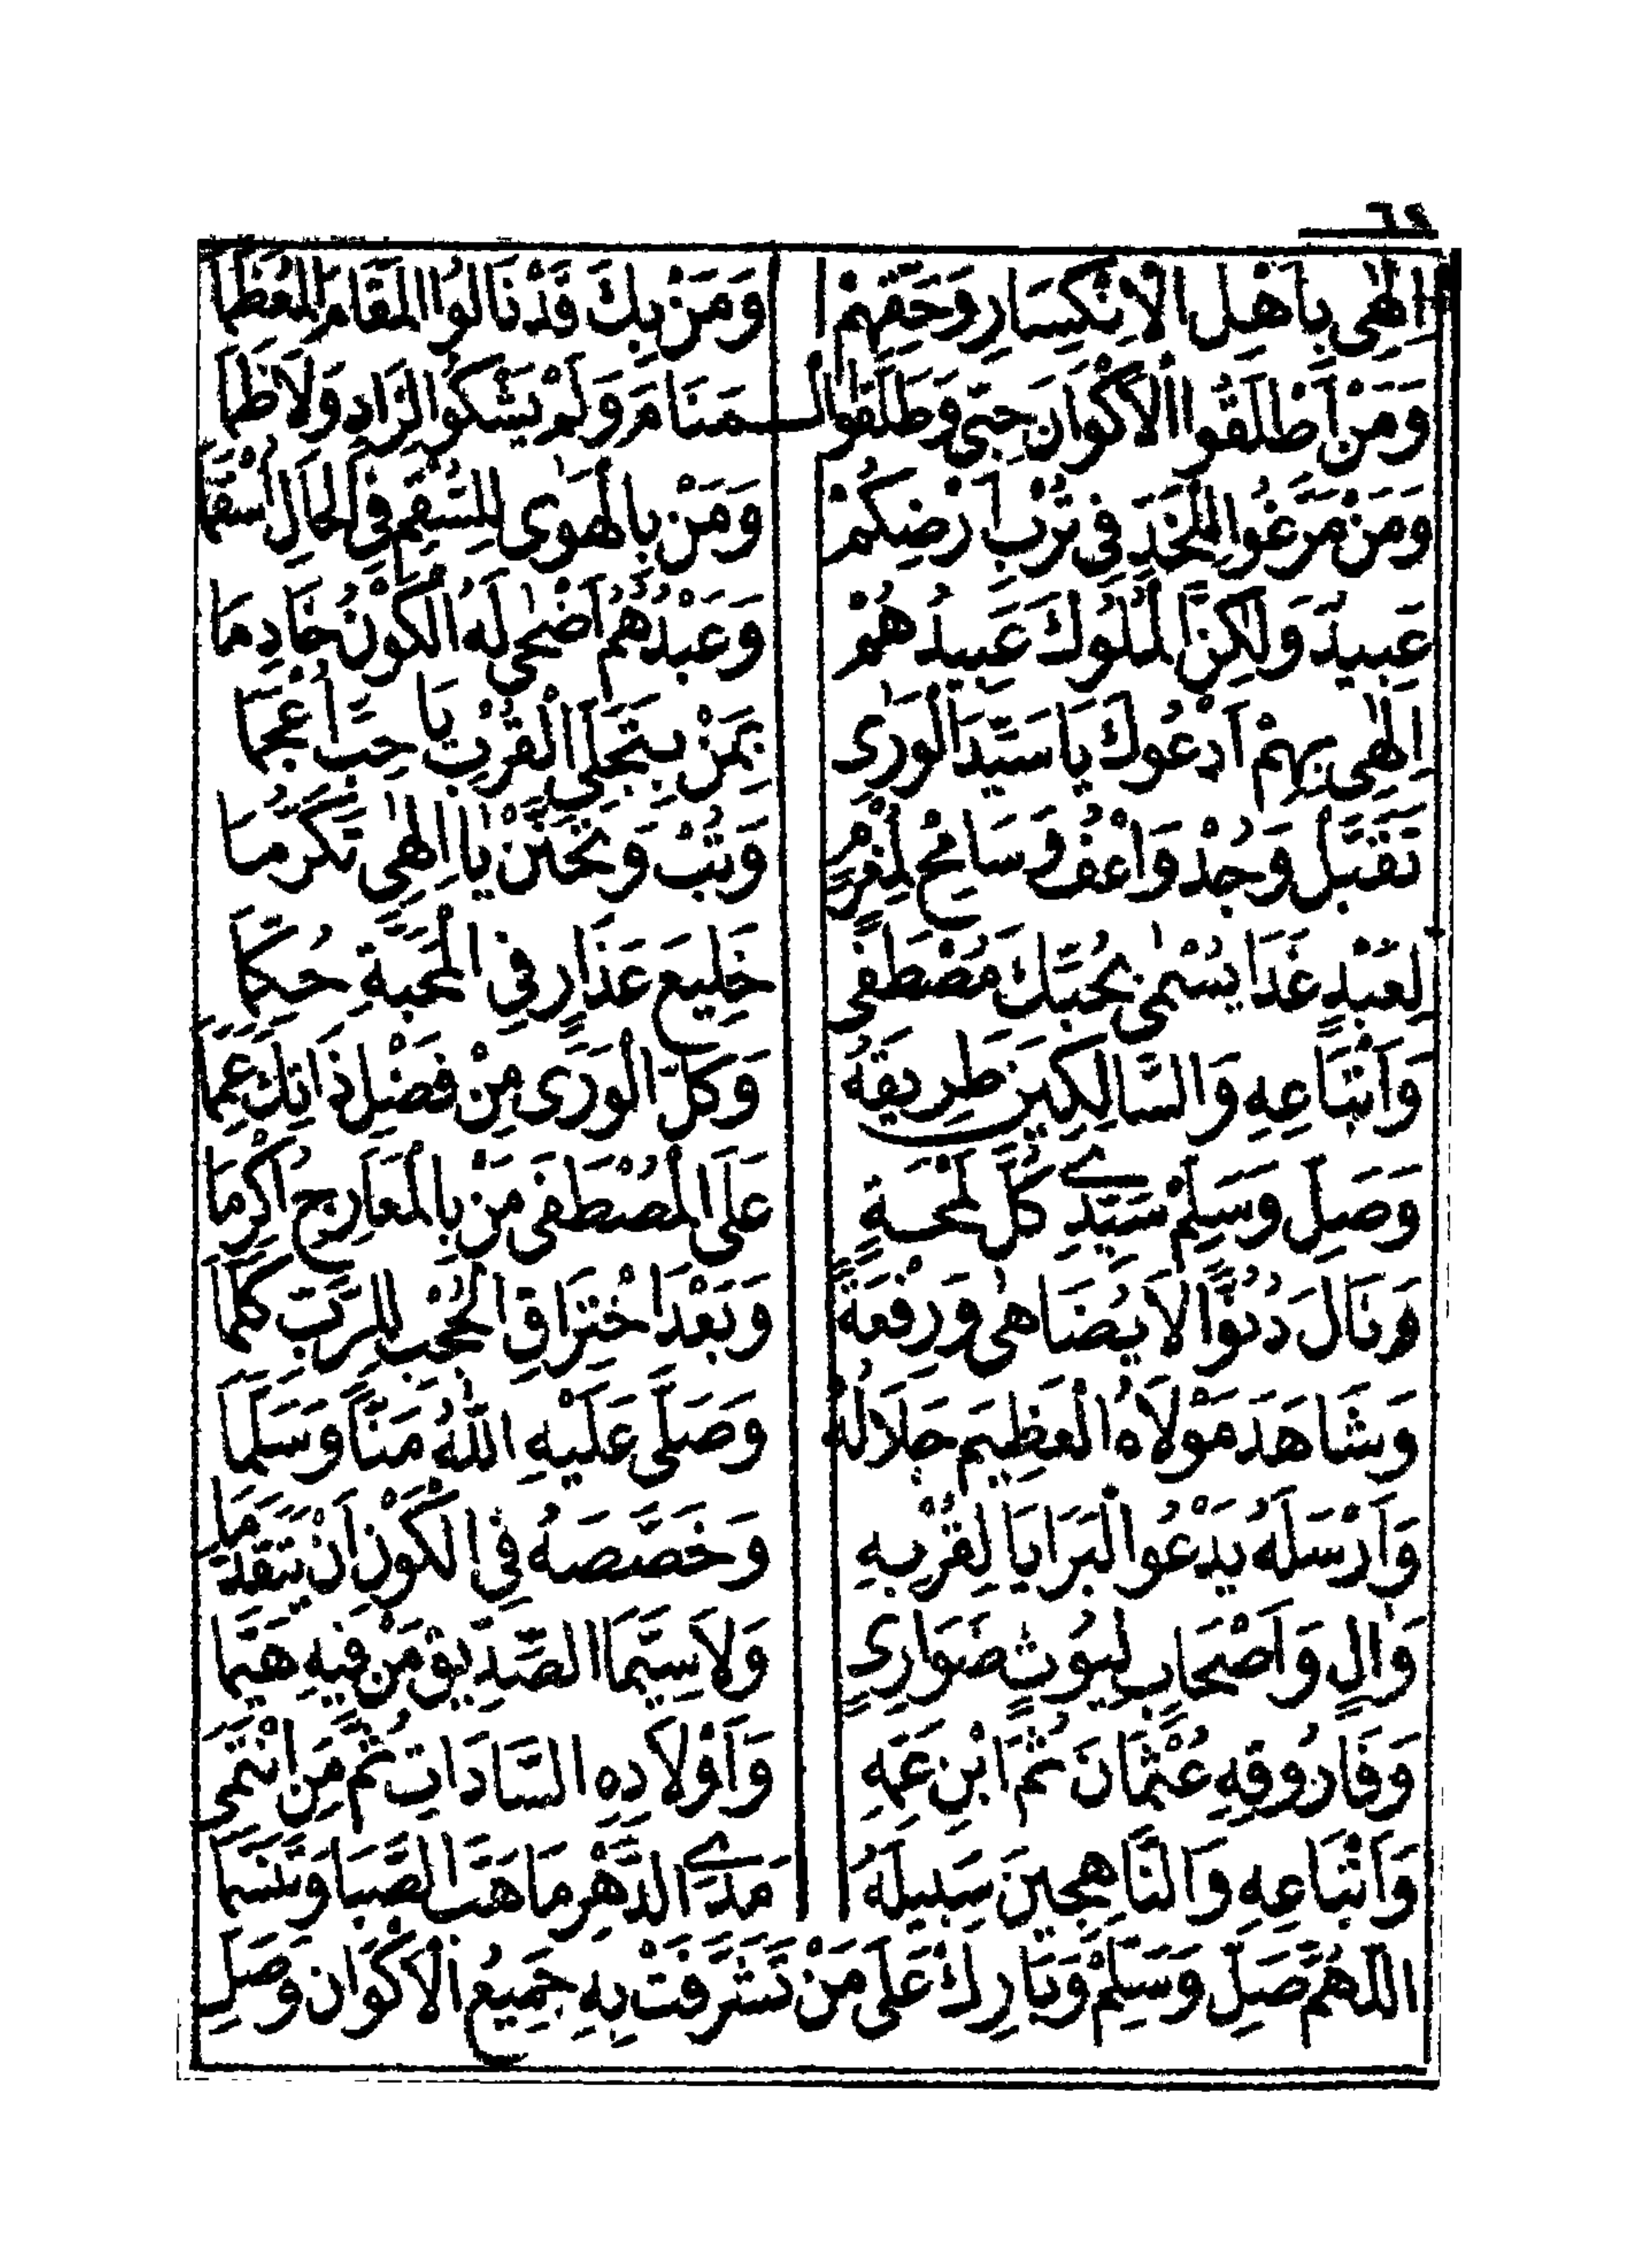 ٦٤
اِلٰهِى بِاَهْلِ الْاِنْكِسَارِ وَحَقِّهِمْ وَمَنْ بِكَ قَدْ نَالُوا الْمَقَامَ الْمُعَظَّمَا
وَمَنْ اَطْلَقُوا الْاَكْوَانَ حِبِّى وَطَلَّقُوا الْـمَنَامَ وَلَمْ يَشْكُوا لِزَادٍ وَلَاظَمَا
وَمَنْ مَرَّغُوا لِلْخَدِّ فِى تُرْبِ اَرْضِكُمْ وَمَنْ بِالْهَوٰى لِلسُّقْمِ فِى الْحَالِ اَسْقَمَا
عَبِيدٌ وَلٰكِنَّ الْمُلُوكَ عَبِيدُهُمْ وَعَبْدُهُمُ اَضْحٰى لَهُ الْكَوْنُ خَادِمَا
اِلٰهِى بِهِمْ اَدْعُوكَ يَا سَيِّدَ الْوَرٰى بِمَنْ بِتَجَلِّى الْقُرْبِ يَا حِبُّ اُعْجِمَا
تَقَبَّلْ وَجُدْ وَاعْفُ وَسَامِحْ لِمُغْرَمٍ وَتُبْ وَتَحَنَّنْ يَا اِلٰهِى تَكَرُّمَا
لِعَبْدٍ غَدَا يُسْمٰى بِحُبِّكَ مُصْطَفٰى خَلِيعَ عَذَارٍ فِى الْمَحَبَّةِ حُكِّمَا
وَاَتْبَاعِهِ وَالسَّالِكِينَ طَرِيقَهُ وَكُلَّ الْوَرٰى مِنْ فَضْلِ ذَاتِكَ عَمِّمَا
وَصَلِّ وَسَلِّمْ سَيِّدِى كُلَّ لَمْحَـةٍ عَلَى الْمُصْطَفٰى مَنْ بِالْمَعَارِجِ اُكْرِمَا
وَنَالَ دُنُوًّا لَا يُضَاهٰى وَرِفْعَةً وَبَعْدَ اخْتِرَاقِ الْحُجْبِ لِلرَّبِّ كَلَّمَا
وَشَاهَدَ مَوْلَاهُ الْعَظِيمَ جَلَالُهُ وَصَلّٰى عَلَيْهِ اللّٰهُ مَنًّا وَسَلَّمَا
وَاَرْسَلَهُ يَدْعُوا الْبَرَايَا لِقُرْبِهِ وَخَصَّصَهُ فِى الْكَوْنِ اَنْ يَتَقَدَّمَا
وَاٰلٍ وَاَصْحَابٍ لُيُوثٍ ضَوَارِىٍ وَلَا سِيَّمَا الصِّدِّيقِ مَنْ فِيهِ هَيَّمَا
وَفَارُوقِهِ عُثْمَانَ ثُمَّ ابْنِ عَمِّهِ وَاَوْلَادِهِ السَّادَاتِ ثُمَّ مَنِ انْتَمٰى
وَاَتْبَاعِهِ وَالنَّاهِجِينَ سَبِيلَهُ مَدَى الدَّهْرِ مَا هَبَّ الصَّبَا وَتَنَسَّمَا
اللّٰهُمَّ صَلِّ وَسَلِّمْ وَبَارِكْ عَلٰى مَنْ تَشَرَّفَتْ بِهِ جَمِيعُ الْاَكْوَانِ وَصَلِّ